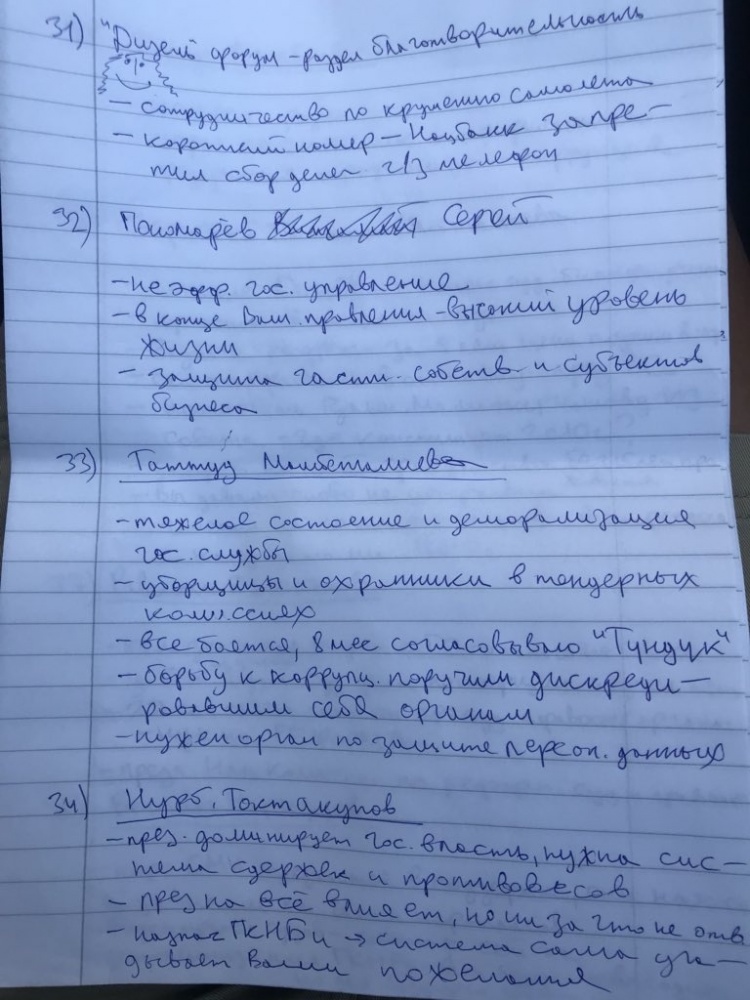 31) "Дизель форум – раздел благотворительность
– сотрудничество по крушению самолета
– короткий номер – Нацбанк запре–
тил сбор денег ч/з телефон
32) Пономарёв Сергей
– неэфф. гос. управление
– в конце Ваш. правления – высокий уровень
жизни
– защита частн. собств. и субъектов
бизнеса
33) Таттуу Мамбеталиева
– тяжелое состояние и деморализация
гос. службы
– уборщицы и охранники в тендерных
комиссиях
– все боятся, 8 мес согласовываю "Тундук"
– борьбу к коррупц. поручили дискреди–
ровавшим себя органам
– нужен орган по защите персон. данных
34) Нурб. Токтакунов
– през. доминирует гос. власть, нужна сис–
тема сдержек и противовесов
– през на всё влияет, но ни за что не отв
– назнач ГКНБи → система сама уга–
дывает Ваши пожелания